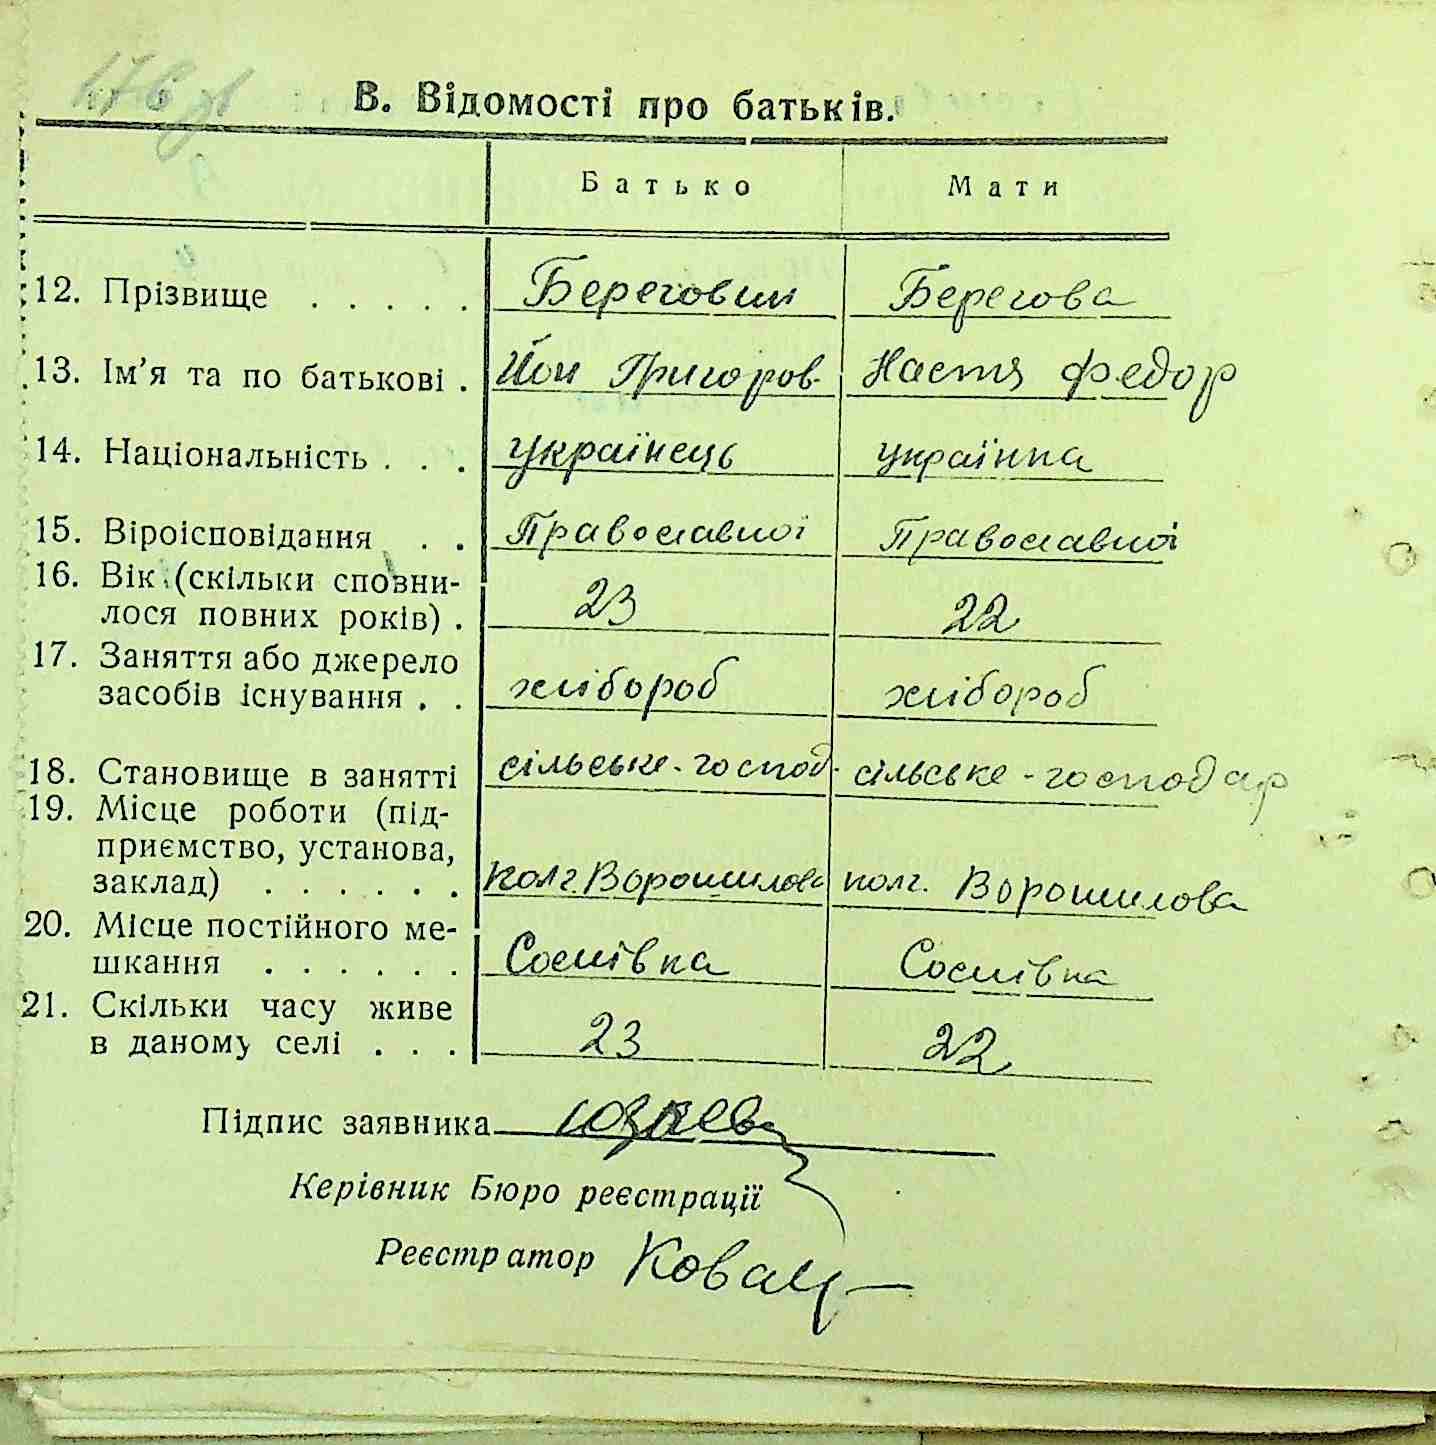 В. Відомості про батьків.
Батько Мати
12. Прізвище . . . . . Береговий Берегова
13. Ім'я та по батькові . Йон Григоров. Настя Федор
14. Національність . . . українець українка
15. Віроісповідання . . Православної Православної
16. Вік (скільки сповни-
лося повних років) . 23 22
17. Заняття або джерело
засобів існування . . хлібороб хлібороб
18. Становище в занятті сільське-господ. сільське-господар
19. Місце роботи (під-
приємство, установа,
заклад) . . . . . . колг. Ворошилова колг. Ворошилова
20. Місце постійного ме-
шкання . . . . . . Сослівка Сослівка
21. Скільки часу живе
в даному селі . . . 23 22
Підпис заявника
Керівник Бюро реєстрації
Реєстратор